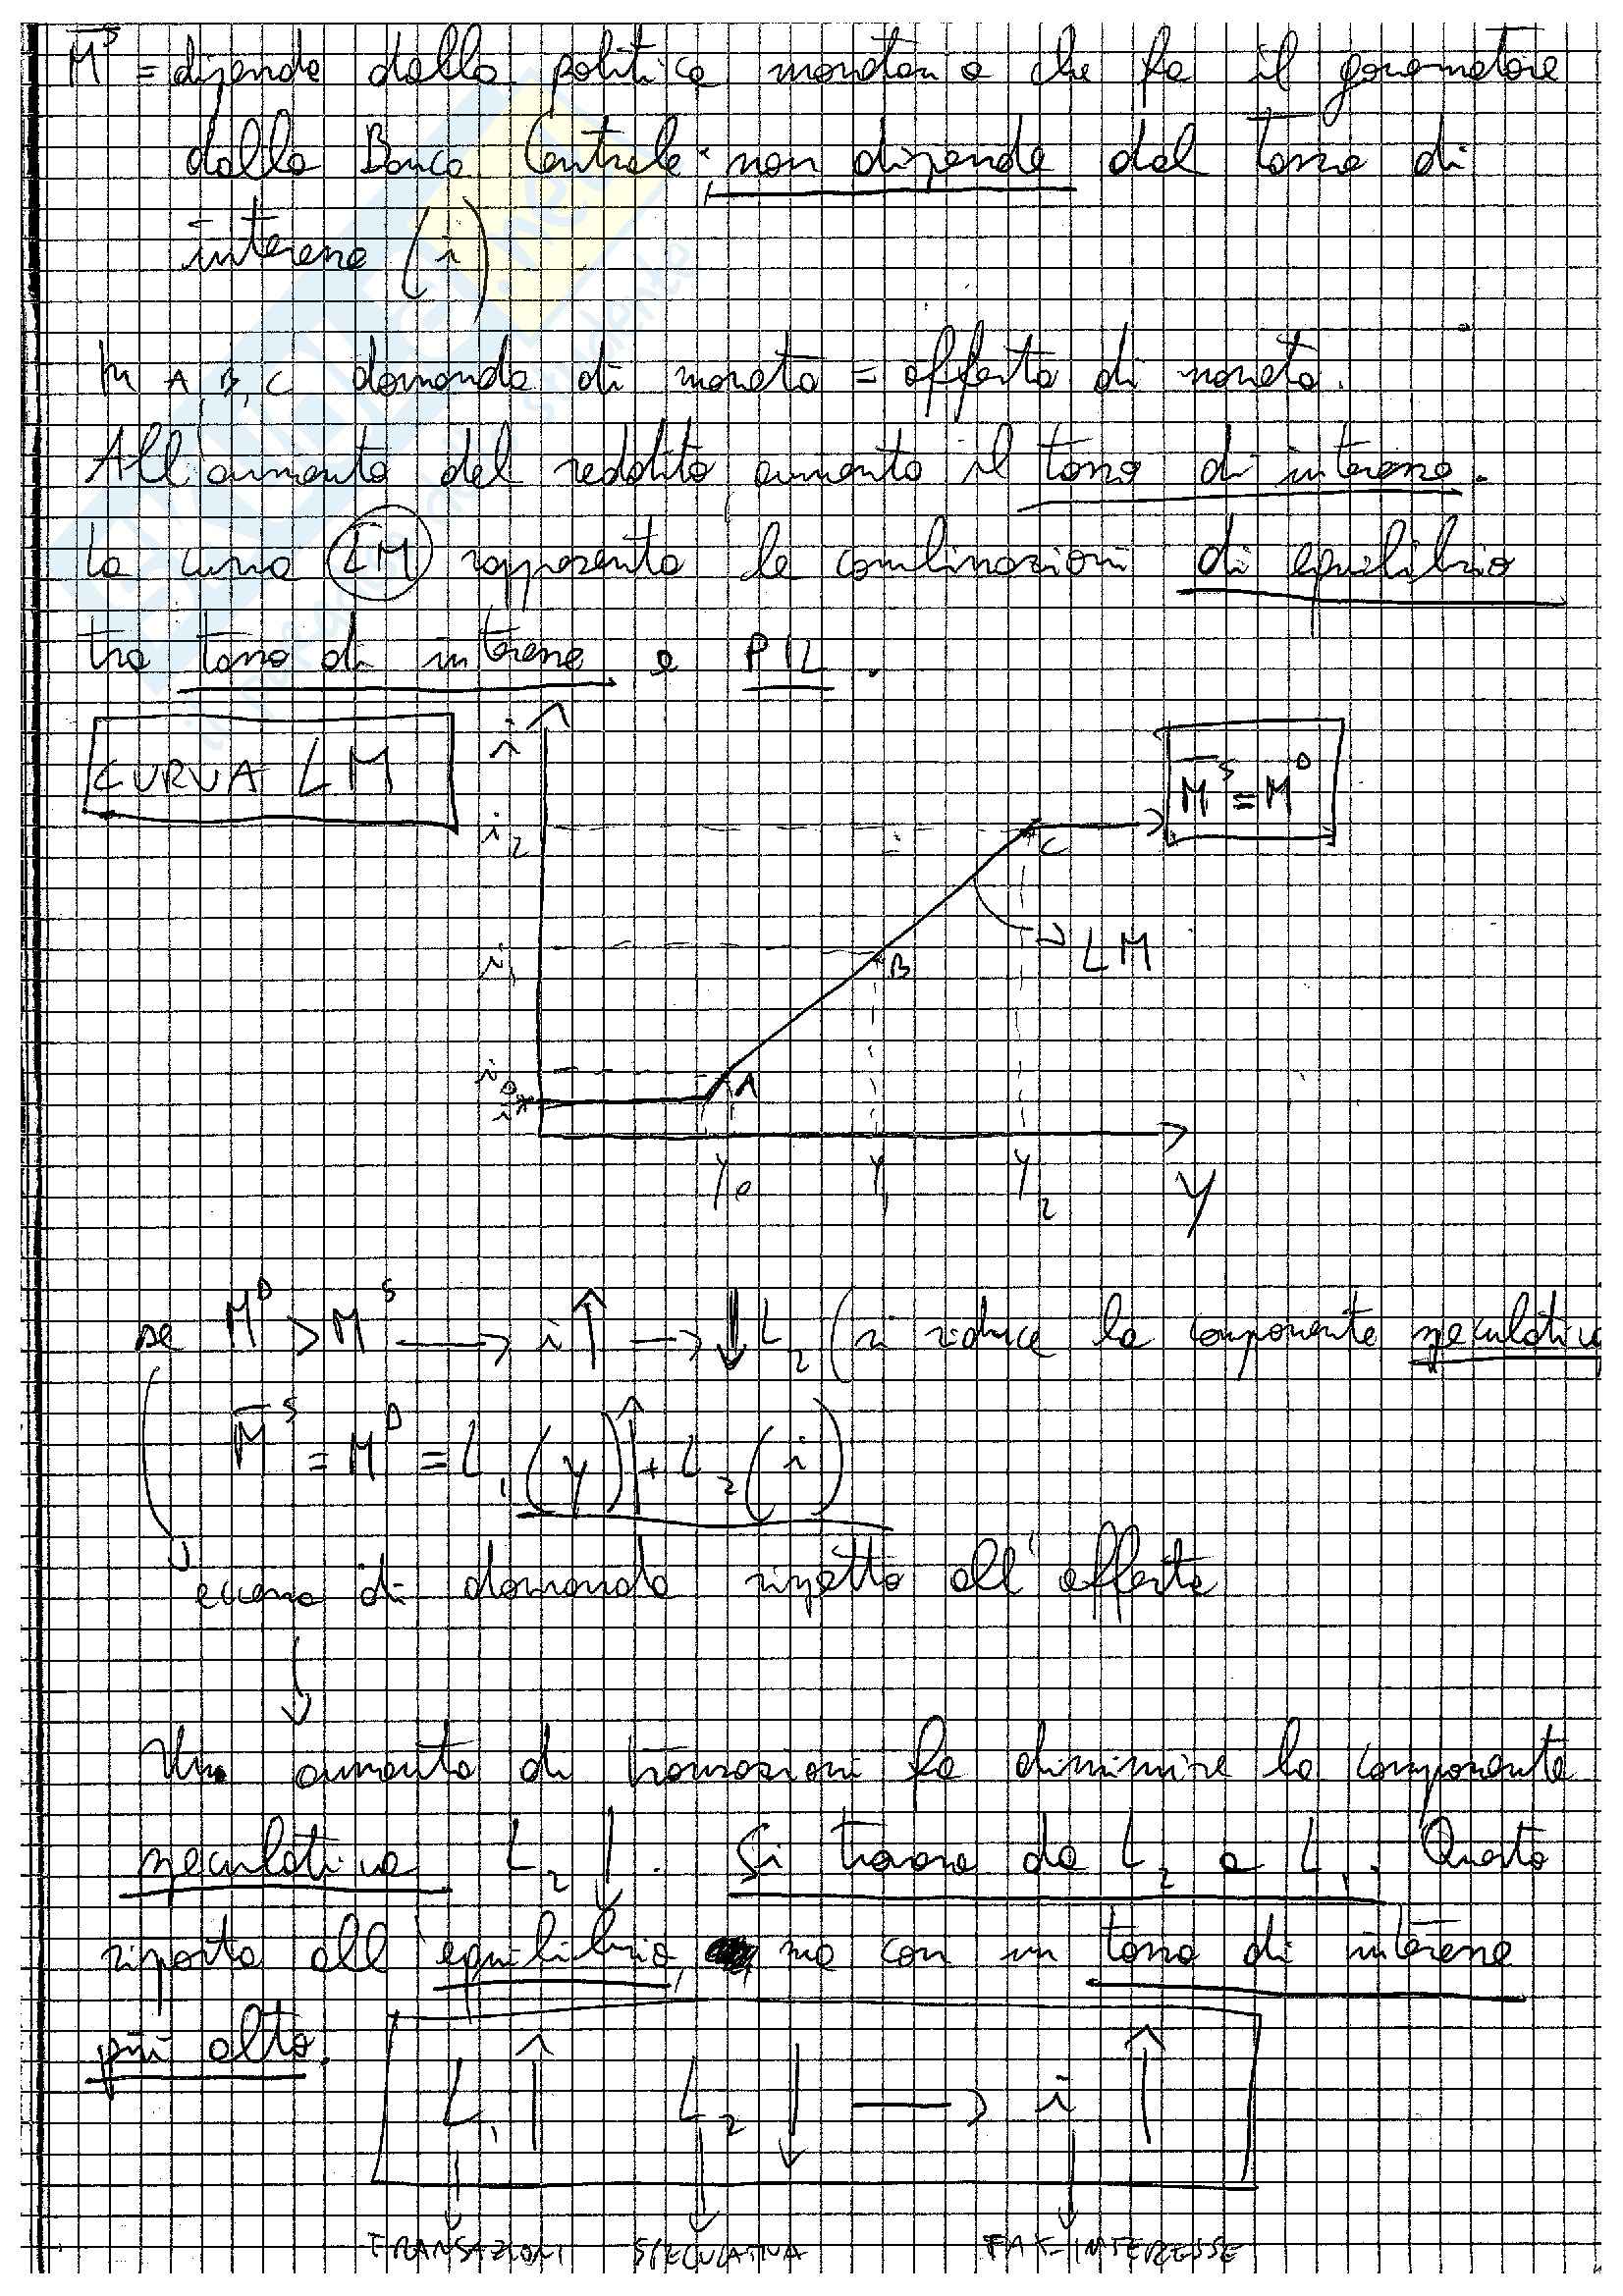 M̄ˢ = dipende dalla politica monetaria che fa il governatore
della Banca Centrale; non dipende dal tasso di
interesse (i)
In A, B, C domanda di moneta = offerta di moneta.
All'aumento del reddito, aumenta il tasso di interesse.
La curva LM rappresenta le combinazioni di equilibrio
tra tasso di interesse e PIL.
CURVA LM
i
M̄ˢ = Mᴰ
i₂
C
LM
i₁
B
i₀
A
i*
Y₀ Y₁ Y₂ Y
se Mᴰ > Mˢ → i ↑ → ↓ L₂ (si riduce la componente speculativa
M̄ˢ = Mᴰ = L₁(y)↑ + L₂(i)
eccesso di domanda rispetto all'offerta
↓
Un aumento di transazioni fa diminuire la componente
speculativa L₂ ↓. Si travasa da L₂ a L₁. Questo
riporta all'equilibrio, ma con un tasso di interesse
più alto.
L₁ ↑ L₂ ↓ → i ↑
TRANSAZIONI SPECULATIVA INTERESSE